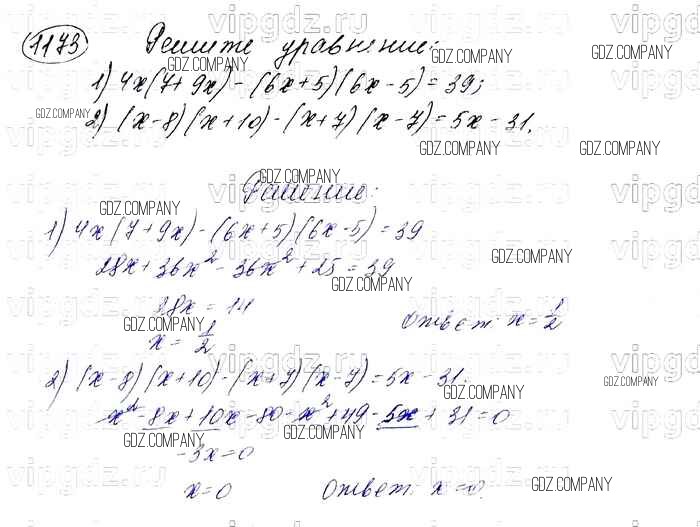 1173 Решите уравнение:
1) 4x(7+9x)-(6x+5)(6x-5)=39;
2) (x-8)(x+10)-(x+7)(x-7)=5x-31.
Решение:
1) 4x(7+9x)-(6x+5)(6x-5)=39
28x+36x²-36x²+25=39
28x=14
x=1/2
Ответ: x=1/2
2) (x-8)(x+10)-(x+7)(x-7)=5x-31;
x²-8x+10x-80-x²+49-5x+31=0
-3x=0
x=0
Ответ: x=0.
GDZ.COMPANY
vipgdz.ru